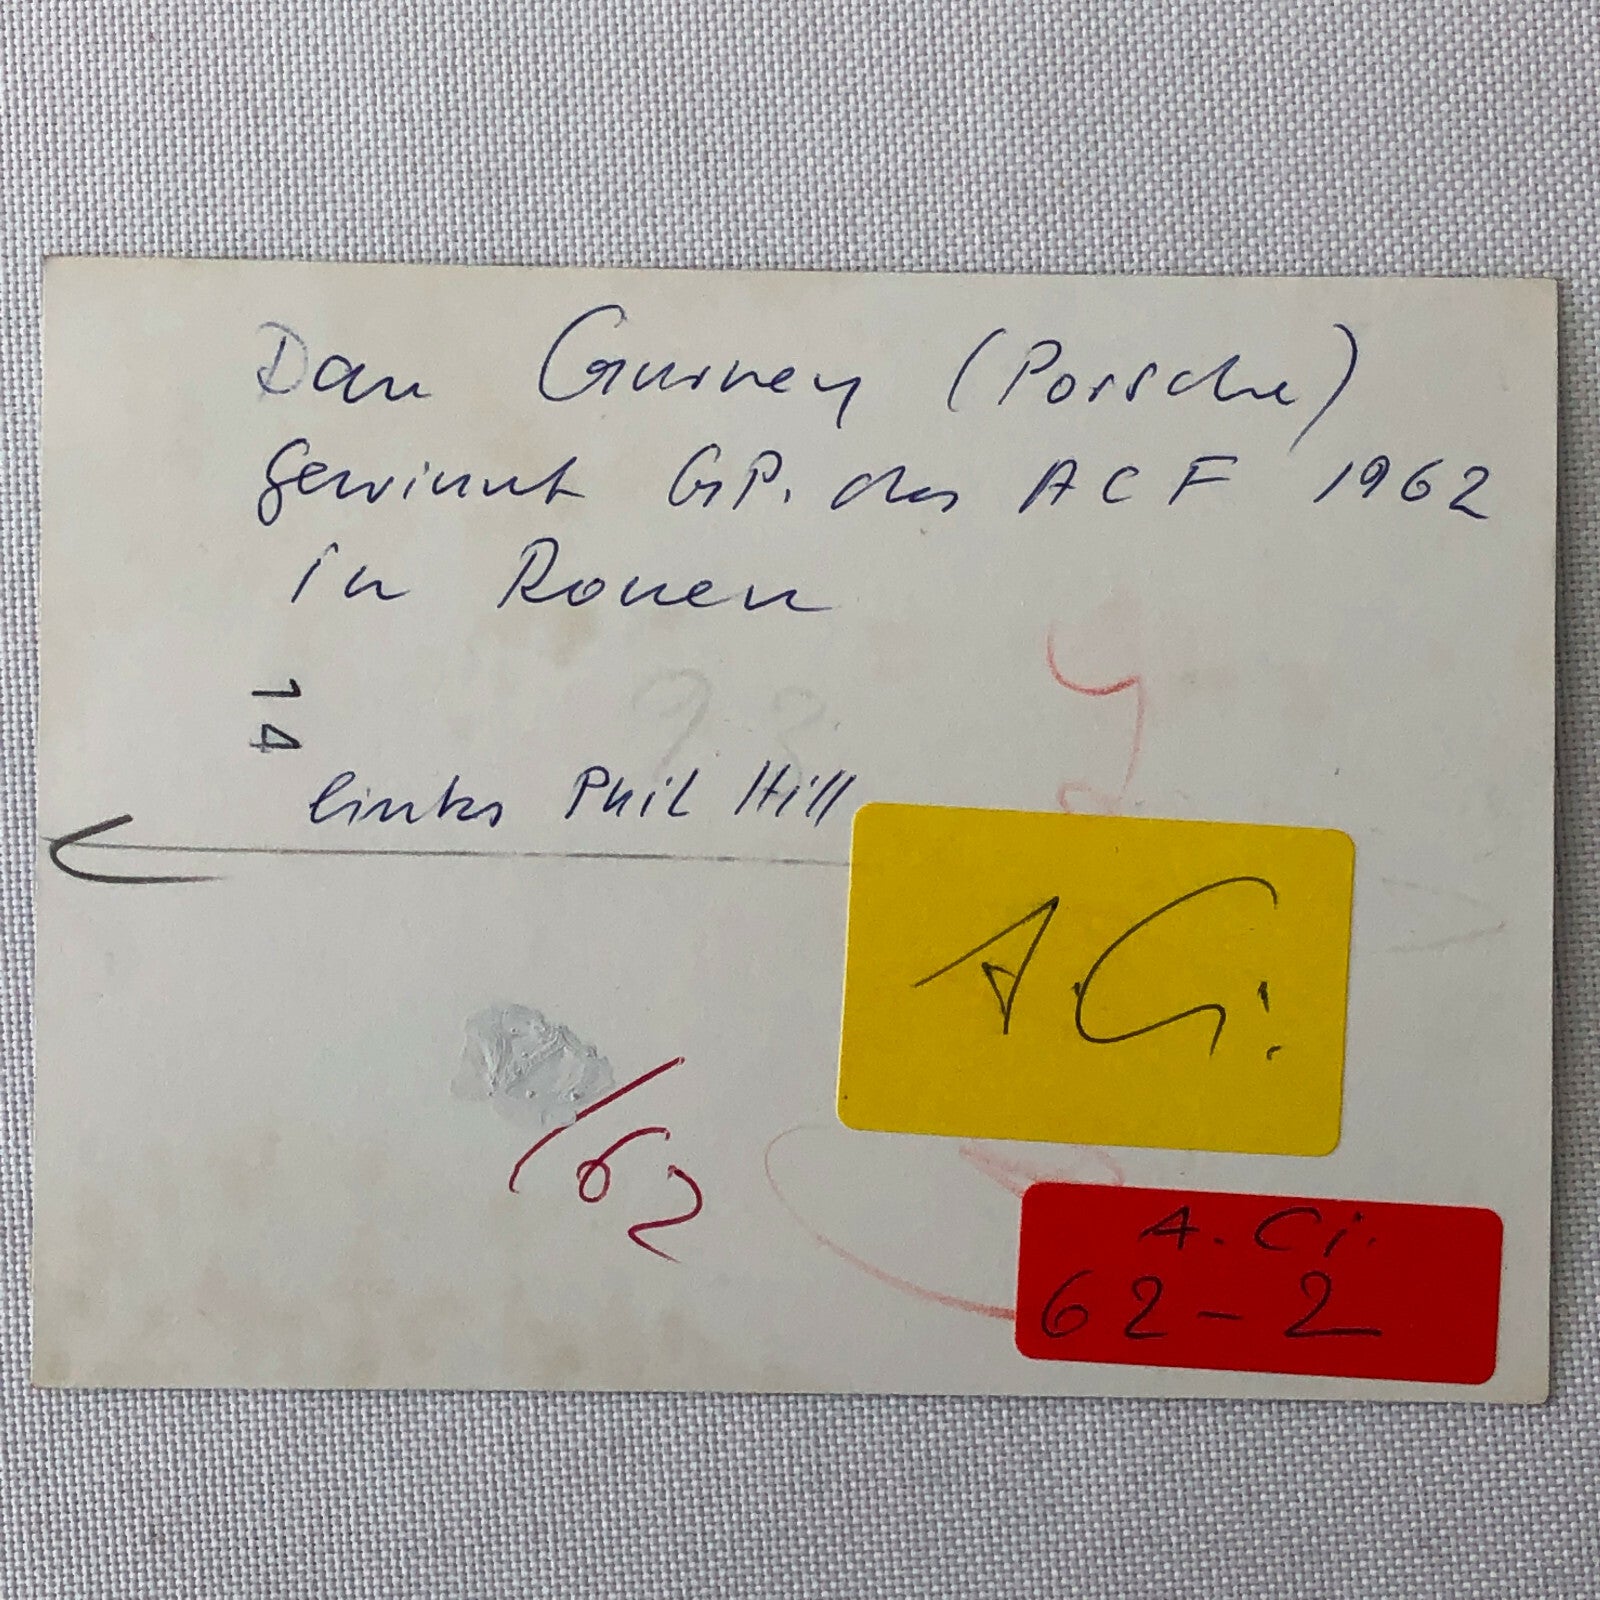 Dan Gurney (Porsche)
gewinnt GP. des ACF 1962
in Rouen
14
links Phil Hill
A.Ci.
/62
A.Ci.
62-2